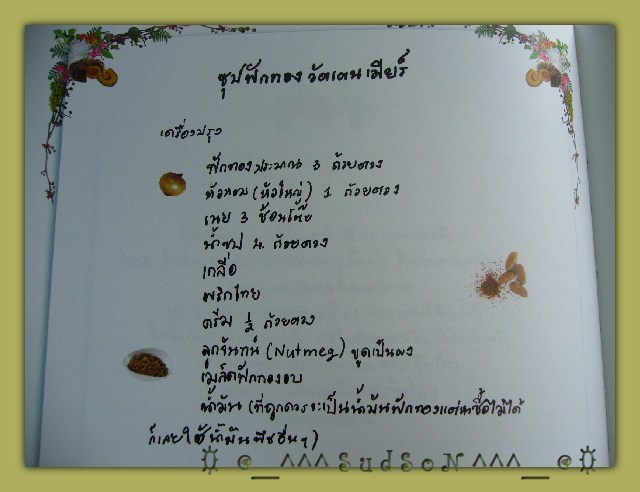 ซุปฟักทอง วัดเดนเมียร์
เครื่องปรุง
ฟักทองประมาณ 3 ถ้วยตวง
หัวหอม (หัวใหญ่) 1 ถ้วยตวง
เนย 3 ช้อนโต๊ะ
น้ำซุป 4 ถ้วยตวง
เกลือ
พริกไทย
ครีม 1/2 ถ้วยตวง
ลูกจันทน์ (Nutmeg) ขูดเป็นผง
เมล็ดฟักทองอบ
น้ำมัน (ที่ถูกควรจะเป็นน้ำมันฟักทองแต่หาซื้อไม่ได้
ก็เลยใช้น้ำมันพืชอื่นๆ)
e_^^^SudSoN^^^_e